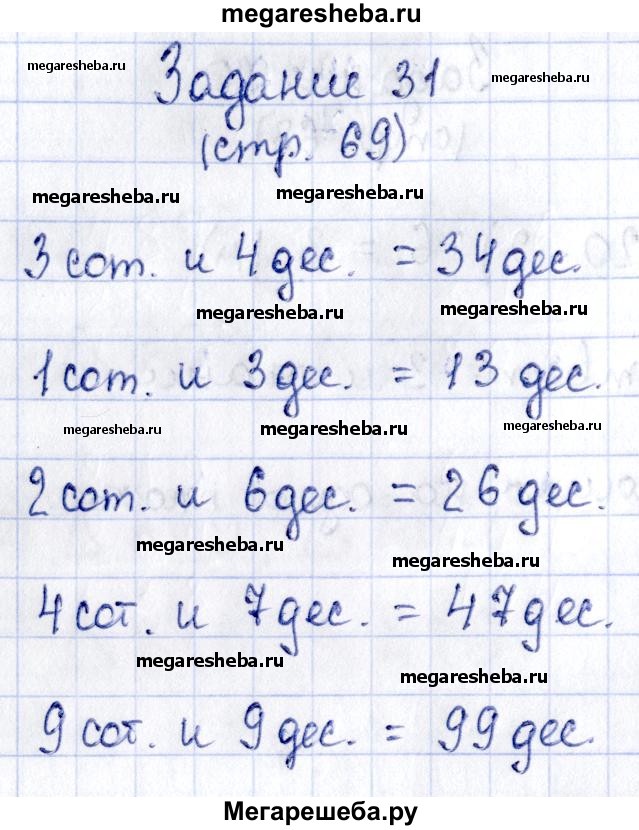 megaresheba.ru
megaresheba.ru
Задание 31
(стр. 69)
megaresheba.ru megaresheba.ru
3 сот. и 4 дес. = 34 дес.
megaresheba.ru megaresheba.ru
1 сот. и 3 дес. = 13 дес.
megaresheba.ru megaresheba.ru megaresheba.ru
2 сот. и 6 дес. = 26 дес.
megaresheba.ru megaresheba.ru
4 сот. и 7 дес. = 47 дес.
megaresheba.ru megaresheba.ru
9 сот. и 9 дес. = 99 дес.
Мегарешеба.ру